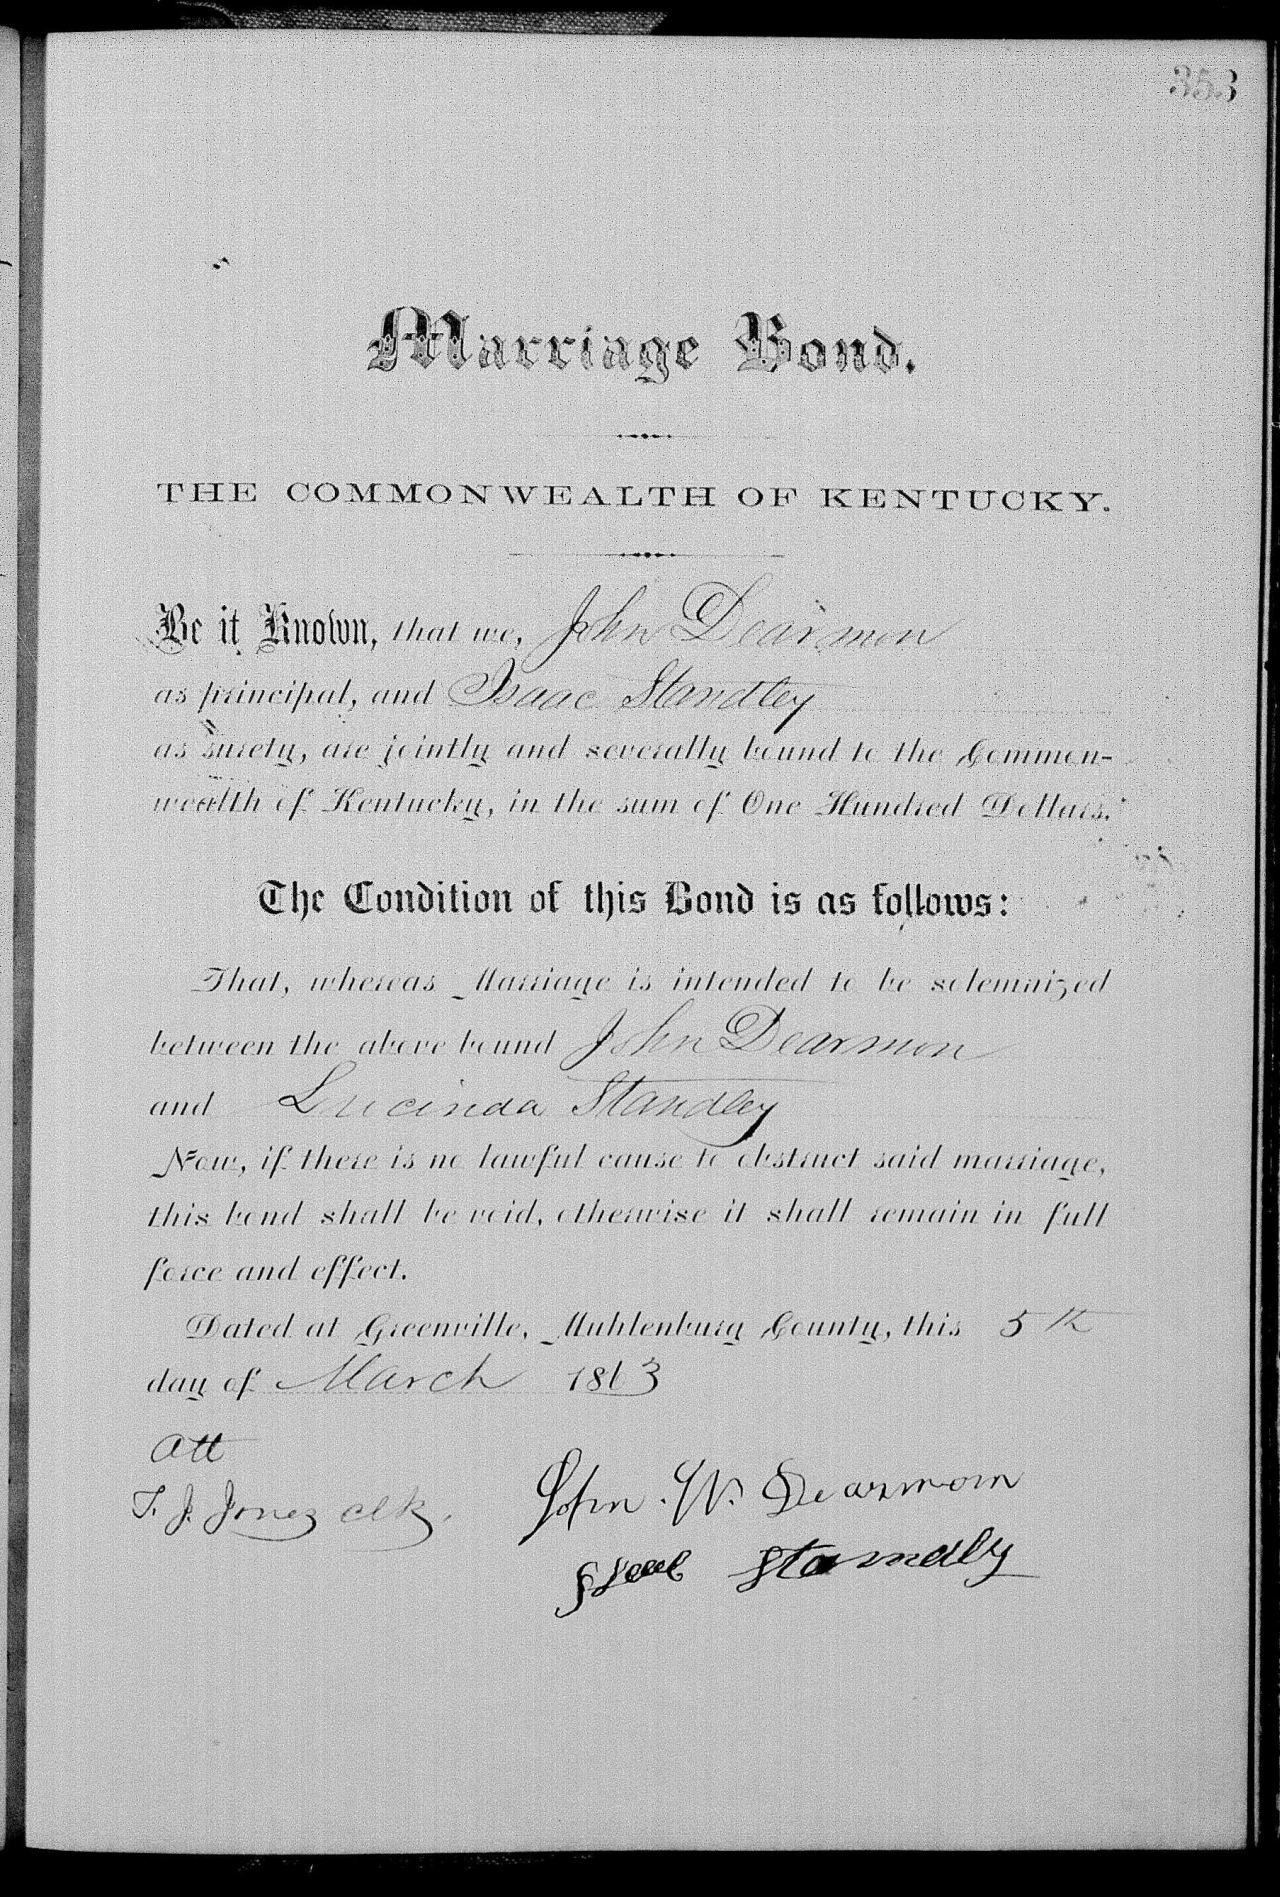 353
Marriage Bond.
THE COMMONWEALTH OF KENTUCKY.
Be it Known, that we, John Dearmon
as principal, and Isaac Standley
as surety, are jointly and severally bound to the Common-
wealth of Kentucky, in the sum of One Hundred Dollars.
The Condition of this Bond is as follows:
That, whereas Marriage is intended to be solemnized
between the above bound John Dearmon
and Lucinda Standley
Now, if there is no lawful cause to obstruct said marriage,
this bond shall be void, otherwise it shall remain in full
force and effect.
Dated at Greenville, Muhlenburg County, this 5th
day of March 1863
Att
T. J. Jones clk.
John. W. Dearmom
Standly